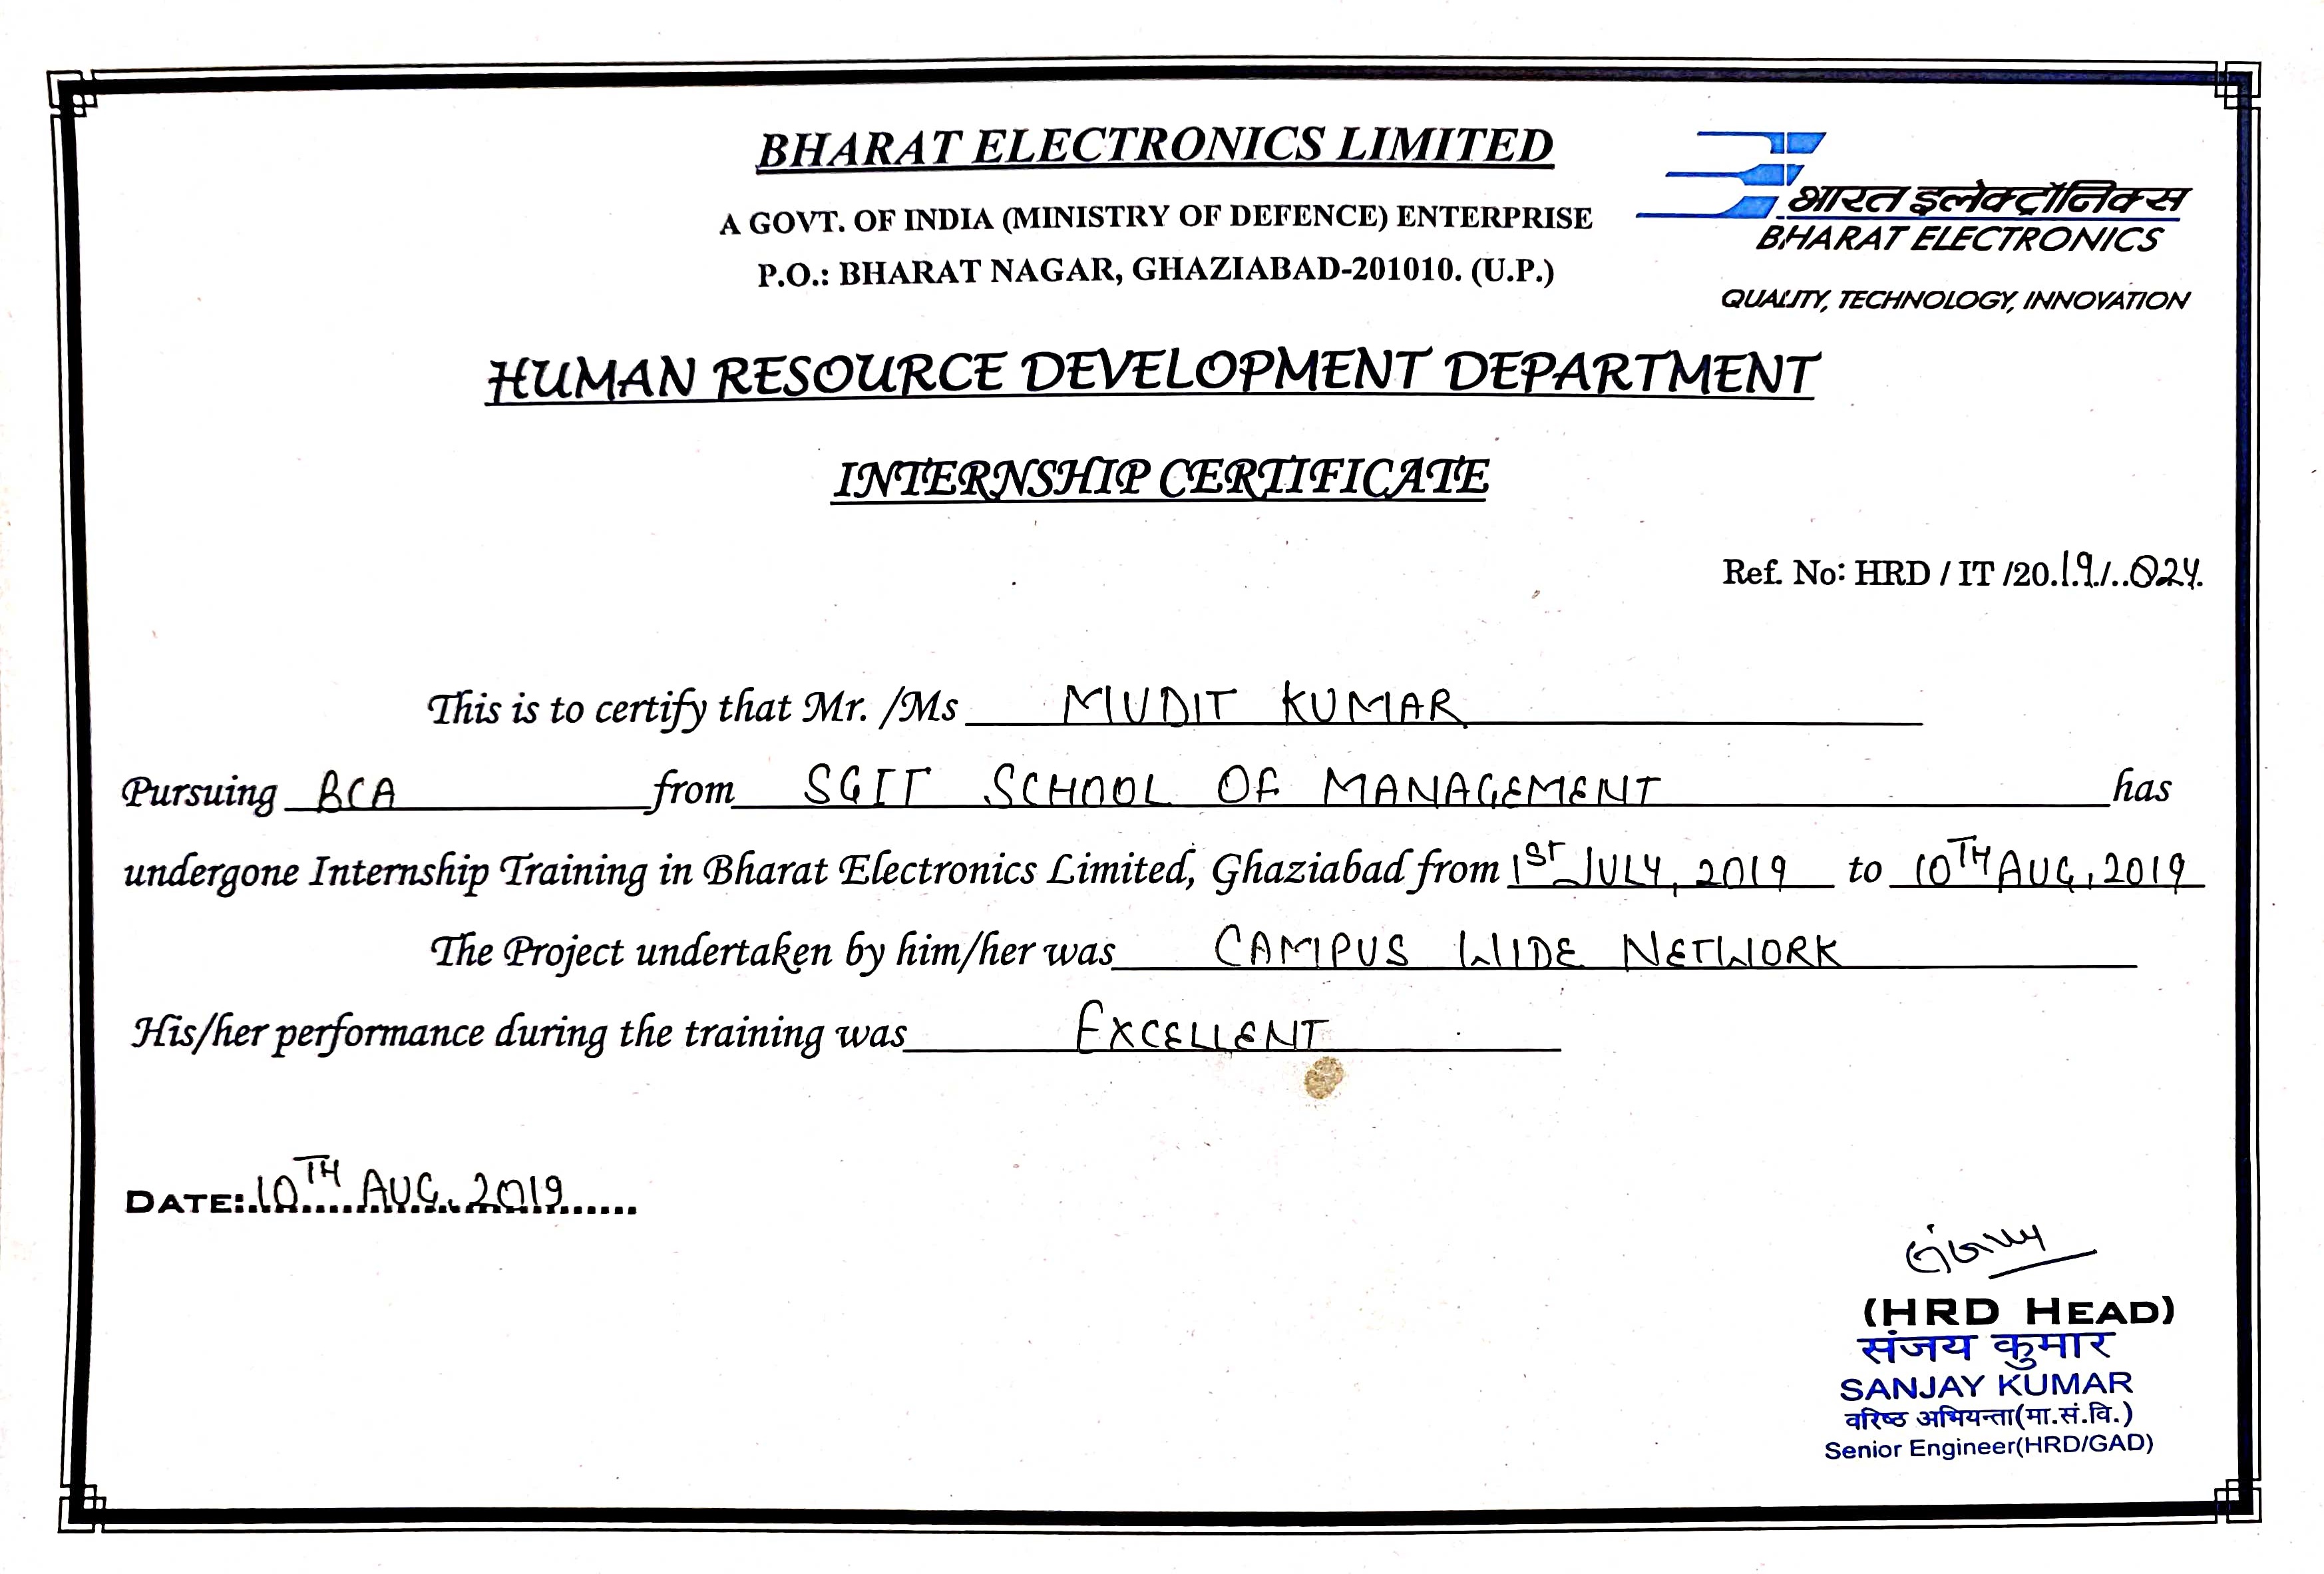 BHARAT ELECTRONICS LIMITED
A GOVT. OF INDIA (MINISTRY OF DEFENCE) ENTERPRISE
P.O.: BHARAT NAGAR, GHAZIABAD-201010. (U.P.)
भारत इलेक्ट्रॉनिक्स
BHARAT ELECTRONICS
QUALITY, TECHNOLOGY, INNOVATION
HUMAN RESOURCE DEVELOPMENT DEPARTMENT
INTERNSHIP CERTIFICATE
Ref. No: HRD / IT /20.19./..024.
This is to certify that Mr. /Ms MUDIT KUMAR
Pursuing BCA from SGIT SCHOOL OF MANAGEMENT has
undergone Internship Training in Bharat Electronics Limited, Ghaziabad from 1ST JULY, 2019 to 10TH AUG, 2019
The Project undertaken by him/her was CAMPUS WIDE NETWORK
His/her performance during the training was EXCELLENT
DATE: 10TH AUG. 2019
(HRD HEAD)
संजय कुमार
SANJAY KUMAR
वरिष्ठ अभियन्ता(मा.सं.वि.)
Senior Engineer(HRD/GAD)